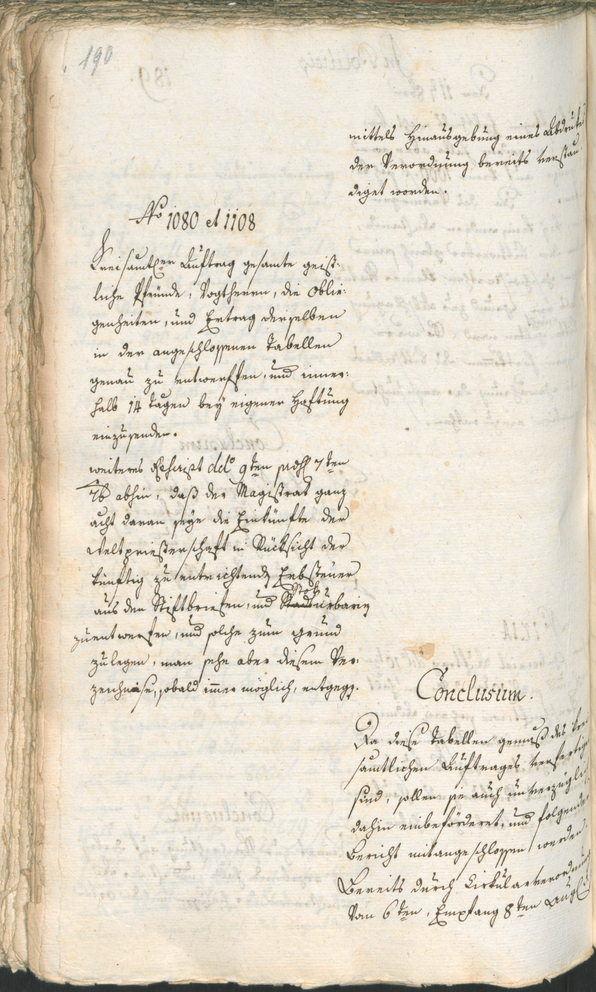 190
mittels Hinausgebung eines Abdruks
der Verordnung bereits verstän
diget worden.
No 1080 et 1108
Kreisamtlicher Auftrag gesamte geist-
liche Pfründe, Vogtherrn, die Oblie-
genheiten, und Ertrag derselben
in der angeschlossenen Tabellen
genau zu entwerffen, und inner-
halb 14 tagen bey eigener Haftung
einzusenden.
weiteres Reskript ddo 9ten 7ten
abhin, daß der Magistrat ganz
acht daran seye die Einkünfte der
Weltpriesterschaft in Rücksicht der
künftig zu entrichtenden Erbsteuer
aus den Stiftbriefen, und
zuentwerfen, und solche zum grund
zulegen, man sehe aber diesem Ver-
zeichnisse, sobald immer möglich, entgegen.
Conclusum.
Da diese Tabellen gemäß des
samtlichen Auftrages verfertiget
sind, sollen sie auch unverzüglich
dahin einbeförderet, und folgender
Bericht mitangeschlossen werden
Bereits durch Cirkularverordnung
Von 6ten, Empfang 8ten